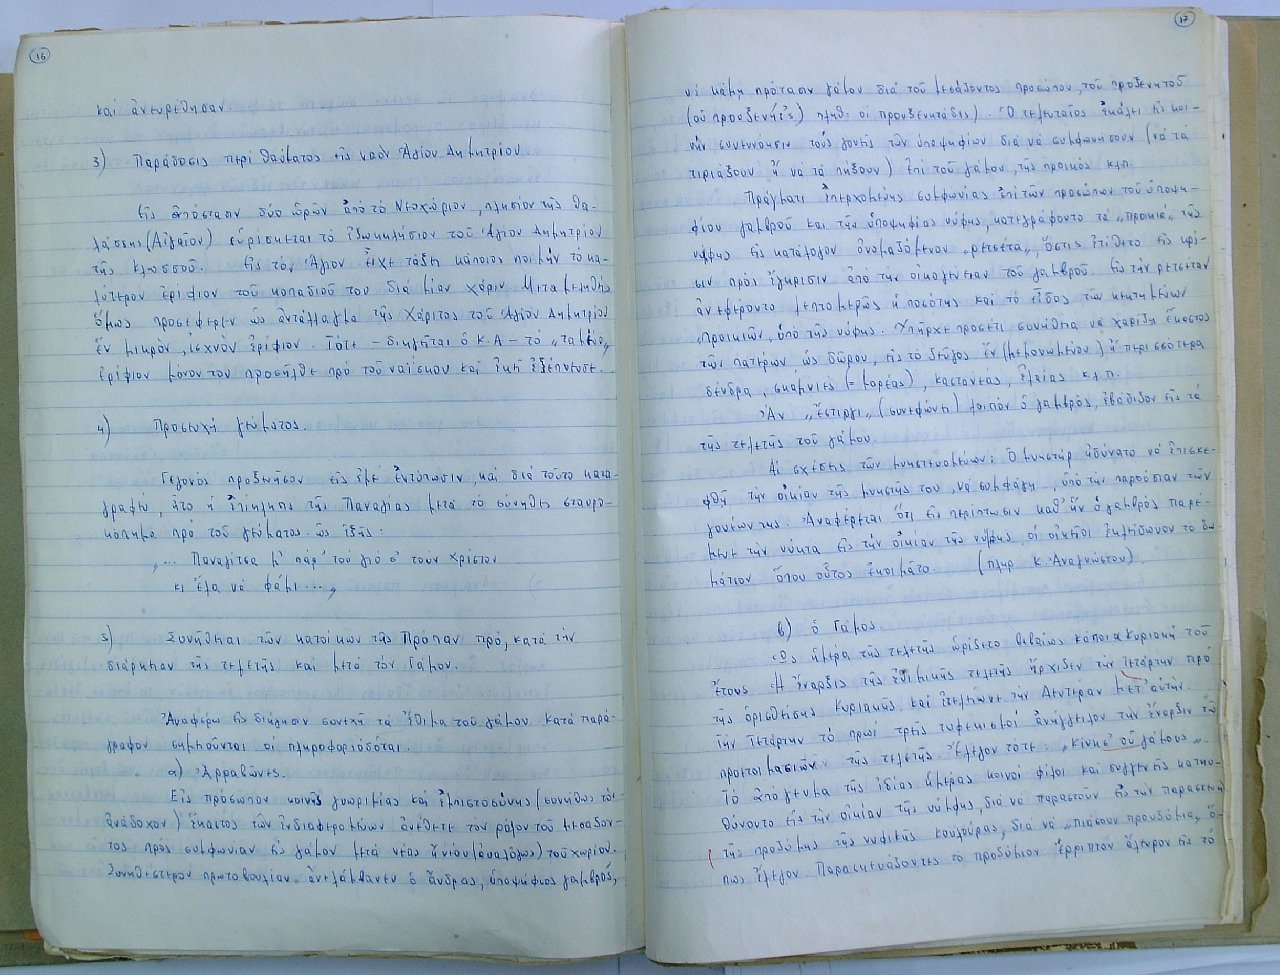 16
καί ἀνευρέθησαν
3) Παράδοσις περί θαύματος εἰς ναόν Ἁγίου Δημητρίου.
Εἰς ἀπόστασιν δύο ὡρῶν ἀπό τό Νεοχώριον, πλησίον τῆς θα-
λάσσης (Αἰγαῖον) εὑρίσκεται τό ἐξωκκλήσιον τοῦ Ἁγίου Δημητρίου
τῆς Κλωσσοῦ. Εἰς τόν Ἅγιον εἶχε τάξη κάποιος ποιμήν τό κα-
λύτερον ἐρίφιον τοῦ κοπαδιοῦ του διά μίαν χάριν. Μεταμεληθείς
ὅμως προσέφερεν ὡς ἀντάλλαγμα τῆς χάριτος τοῦ Ἁγίου Δημητρίου
ἕν μικρόν, ἰσχνόν ἐρίφιον. Τότε – διηγεῖται ὁ Κ.Α – τό „ταμένο„
ἐρίφιον μόνον του προσῆλθε πρό τοῦ ναΐσκου καί ἐκεῖ ἐξέπνευσε.
4) Προσευχή γεύματος.
Γεγονός προξενῆσαν εἰς ἐμέ ἐντύπωσιν, καί διά τοῦτο κατα-
γραφέν, ἦτο ἡ ἐπίκλησις τῆς Παναγίας μετά τό σύνηθες σταυρο-
κόπημα πρό τοῦ γεύματος ὡς ἑξῆς:
„... Παναγίτσα μ' πάρ' τού γιό σ' τούν Χρίστον
κι ἔλα νά φᾶμι...„
5) Συνήθειαι τῶν κατοίκων τῆς Πρόπαν πρό, κατά τήν
διάρκειαν τῆς τελετῆς καί μετά τόν Γάμον.
Ἀναφέρω εἰς διήγησιν συνεχῆ τά ἔθιμα τοῦ γάμου. Κατά παρά-
γραφον σημειοῦνται οἱ πληροφοριόδόται.
α) Ἀρραβῶνες.
Εἰς πρόσωπον κοινῆς γνωριμίας καί ἐμπιστοσύνης (συνήθως τόν
ἀνάδοχον) ἕκαστος τῶν ἐνδιαφερομένων ἀνέθετε τόν ρόλον τοῦ μεσάζον-
τος πρός συμφωνίαν εἰς γάμον μετά νέας ἤ νέου (ἀναλόγως) τοῦ χωρίου.
Συνηθέστερον πρωτοβουλίαν ἀνελάμβανεν ὁ ἄνδρας, ὑποψήφιος γαμβρός,
17
νά κάμη πρότασιν γάμου διά τοῦ μεσάζοντος προσώπου, τοῦ προξενητοῦ
(οὑ προυξενητής) πληθ: οἱ προυξενητάδις). Ὁ τελευταῖος ἐκάλει εἰς κοι-
νήν συνεννόησιν τούς γονεῖς τῶν ὑποψηφίων διά νά συμφωνήσουν (νά τά
τιριάξουν ἤ νά τά πήξουν) ἐπί τοῦ γάμου, τῆς προικός κ.λ.π.
Πράγματι ἐπερχομένης συμφωνίας ἐπί τῶν προσώπων τοῦ ὑποψη-
φίου γαμβροῦ καί τῆς ὑποψηφίας νύφης, κατεγράφοντο τά „προικιά„ τῆς
νύφης εἰς κατάλογον ὀνομαζόμενον „ρετσέτα„, ὅστις ἐτίθετο εἰς κρί-
σιν πρός ἔγκρισιν ἀπό τήν οἰκογένειαν τοῦ γαμβροῦ. Εἰς τήν ρετσέταν
ἀνεφέροντο λεπτομερῶς ἡ ποσότης καί τό εἶδος τῶν κεκτημένων
„προικιῶν„ ὑπό τῆς νύφης. Ὑπῆρχε προσέτι συνήθεια νά χαρίζη ἕκαστος
τῶν πατέρων, ὡς δῶρον, εἰς τό ζεῦγος ἕν (μεμονωμένον) ἤ περισσότερα
δένδρα, σκαμνιές (= μορέας), καστανέας, ἐλαίας κ.λ.π.
Ἄν „ἔστιργι„ (συνεφώνει) λοιπόν ὁ γαμβρός, ἐβάδιζον εἰς τά
τῆς τελετῆς τοῦ γάμου.
Αἱ σχέσεις τῶν μνηστευομένων: Ὁ μνηστήρ ἠδύνατο νά ἐπισκε-
φθῇ τήν οἰκίαν τῆς μνηστῆς του, νά συμφάγῃ, ὑπό τήν παρουσίαν τῶν
γονέων της. Ἀναφέρεται ὅτι εἰς περίπτωσιν καθ' ἥν ὁ γαμβρός παρέ-
μενε τήν νύκτα εἰς τήν οἰκίαν τῆς νύφης, οἱ οἰκεῖοι ἐκλείδωνον τό δω-
μάτιον ὅπου οὗτος ἐκοιμᾶτο. (πληρ. Κ. Ἀναγνώστου)
β) ὁ Γάμος.
Ὡς ἡμέρα τῆς τελετῆς ὡρίζετο βεβαίως κάποια Κυριακή τοῦ
ἔτους. Ἡ ἔναρξις τῆς ἐθιμικῆς τελετῆς ἤρχιζεν τήν Τετάρτην πρό
τῆς ὁρισθείσης Κυριακῆς καί ἐτελείωνε τήν Δευτέραν μετ' αὐτήν.
Τήν Τετάρτην τό πρωί τρεῖς τυφεκισμοί ἀνήγγελλον τήν ἔναρξιν τῶν
προετοιμασιῶν τῆς τελετῆς. Ἔλεγον τότε: „κίνησ' οὑ γάμους„.
Τό ἀπόγευμα τῆς ἰδίας ἡμέρας κοινοί φίλοι καί συγγενεῖς κατηυ-
θύνοντο εἰς τήν οἰκίαν τῆς νύμφης, διά νά παραστοῦν εἰς τήν παρασκευήν
τῆς προζύμης τῆς νυφικῆς κουλούρας, διά νά „πιάσουν προυζύμια„ ὅ-
πως ἔλεγον. Παρασκευάζοντες τό προζύμιον ἔρριπτον ἄλευρον εἰς τό